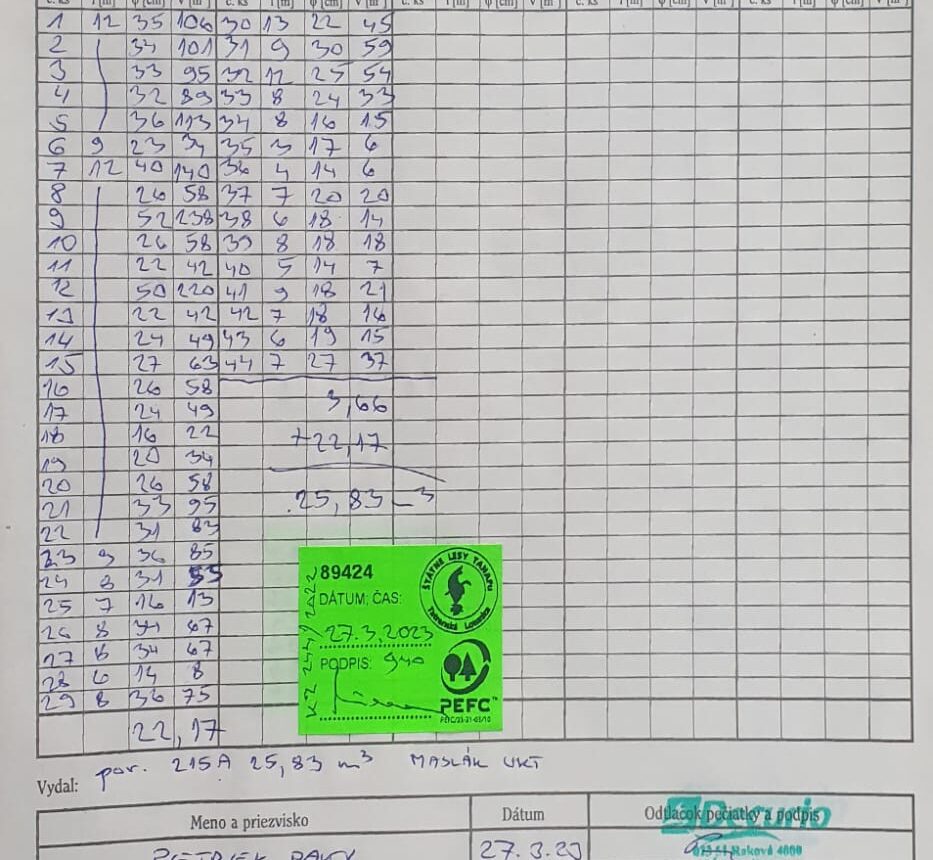 č. ks l [m] φ [cm] V [m³] č. ks l [m] φ [cm] V [m³] č. ks l [m] φ [cm] V [m³] č. ks l [m] φ [cm] V [m³]
1 12 35 106 30 13 22 45
2 34 101 31 9 30 59
3 33 95 32 12 25 54
4 32 89 33 8 24 33
5 36 113 34 8 16 15
6 9 23 34 35 3 17 6
7 12 40 140 36 4 14 6
8 26 58 37 7 20 20
9 52 238 38 6 18 14
10 26 58 39 8 18 18
11 22 42 40 5 14 7
12 50 220 41 9 18 21
13 22 42 42 7 18 16
14 24 49 43 6 19 15
15 27 63 44 7 27 37
16 26 58
17 24 49 3,66
18 16 22 +22,17
19 20 34
20 26 58 25,83 m3
21 33 95
22 31 83
23 9 36 85
24 8 31 55
25 7 16 13
26 8 34 67
27 8 34 67
28 6 14 8
29 8 36 75
22,17
89424
DÁTUM, ČAS:
27.3.2023
PODPIS: 940
ŠTÁTNE LESY TANAPU
Tatranská Lomnica
PEFC™
por. 215A 25,83 m³ MASLÁK UKT
Vydal:
Meno a priezvisko Dátum Odtlačok pečiatky a podpis
Decurio
27.3.23
Raková